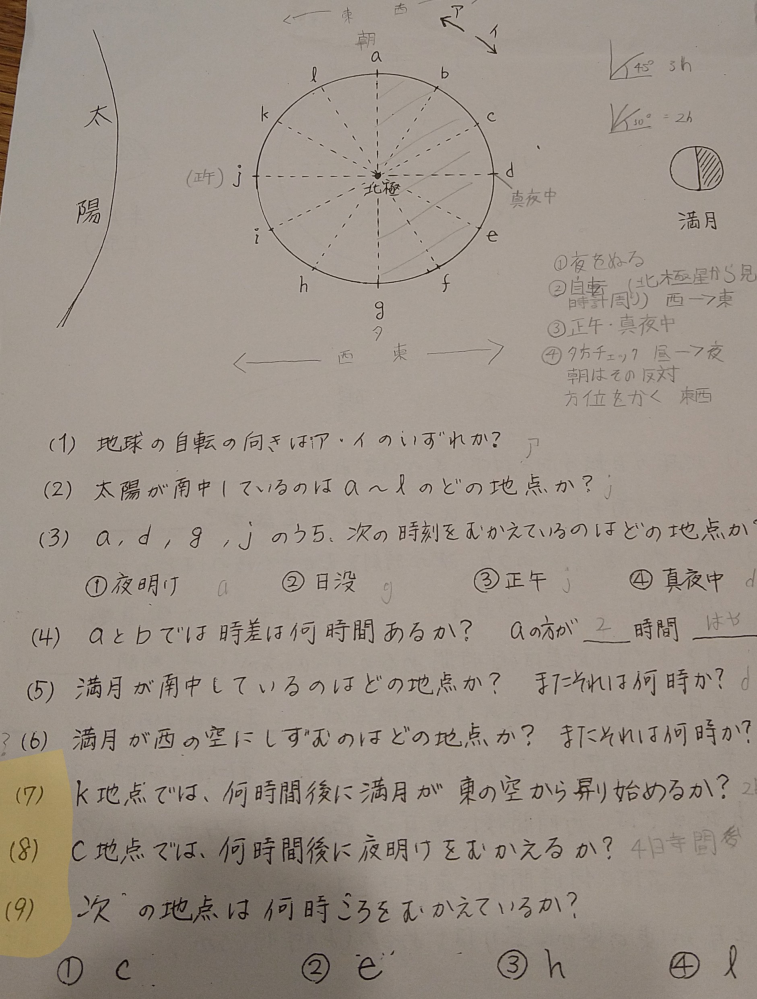 東 西
ア
イ
朝
a
l b
k c
(正午) j d
北極
真夜中
i e
h f
g
夕
太
陽
西 東
45° 3h
30° = 2h
満月
①夜をぬる
②自転 (北極星から見
時計周り) 西→東
③正午・真夜中
④夕方チェック 昼→夜
朝はその反対
方位をかく 東西
(1) 地球の自転の向きはア・イのいずれか? ア
(2) 太陽が南中しているのはa~lのどの地点か? j
(3) a, d, g, jのうち、次の時刻をむかえているのはどの地点か?
①夜明け a ②日没 g ③正午 j ④真夜中 d
(4) aとbでは時差は何時間あるか? aの方が 2 時間 はや
(5) 満月が南中しているのはどの地点か? またそれは何時か? d
? (6) 満月が西の空にしずむのはどの地点か? またそれは何時か?
(7) k地点では、何時間後に満月が東の空から昇り始めるか? 2
(8) C地点では、何時間後に夜明けをむかえるか? 4時間後
(9) 次の地点は何時ごろをむかえているか?
① c ② e ③ h ④ l